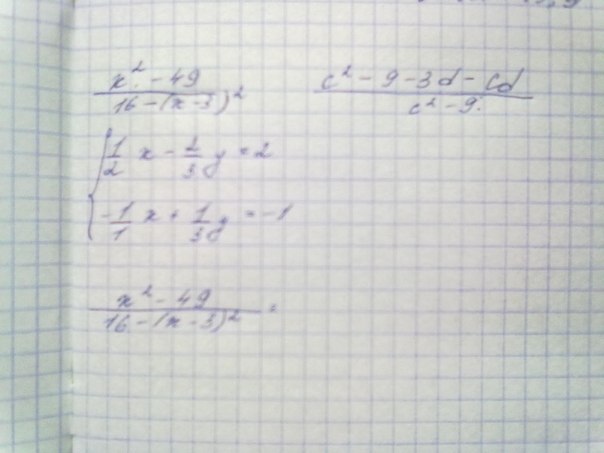 x² - 49 / 16 - (x - 3)²    c² - 9 - 3d - cd / c² - 9
{ 1/2 x - 2/3 y = 2
{ -1/1 x + 1/3 y = -1
x² - 49 / 16 - (x - 3)² =